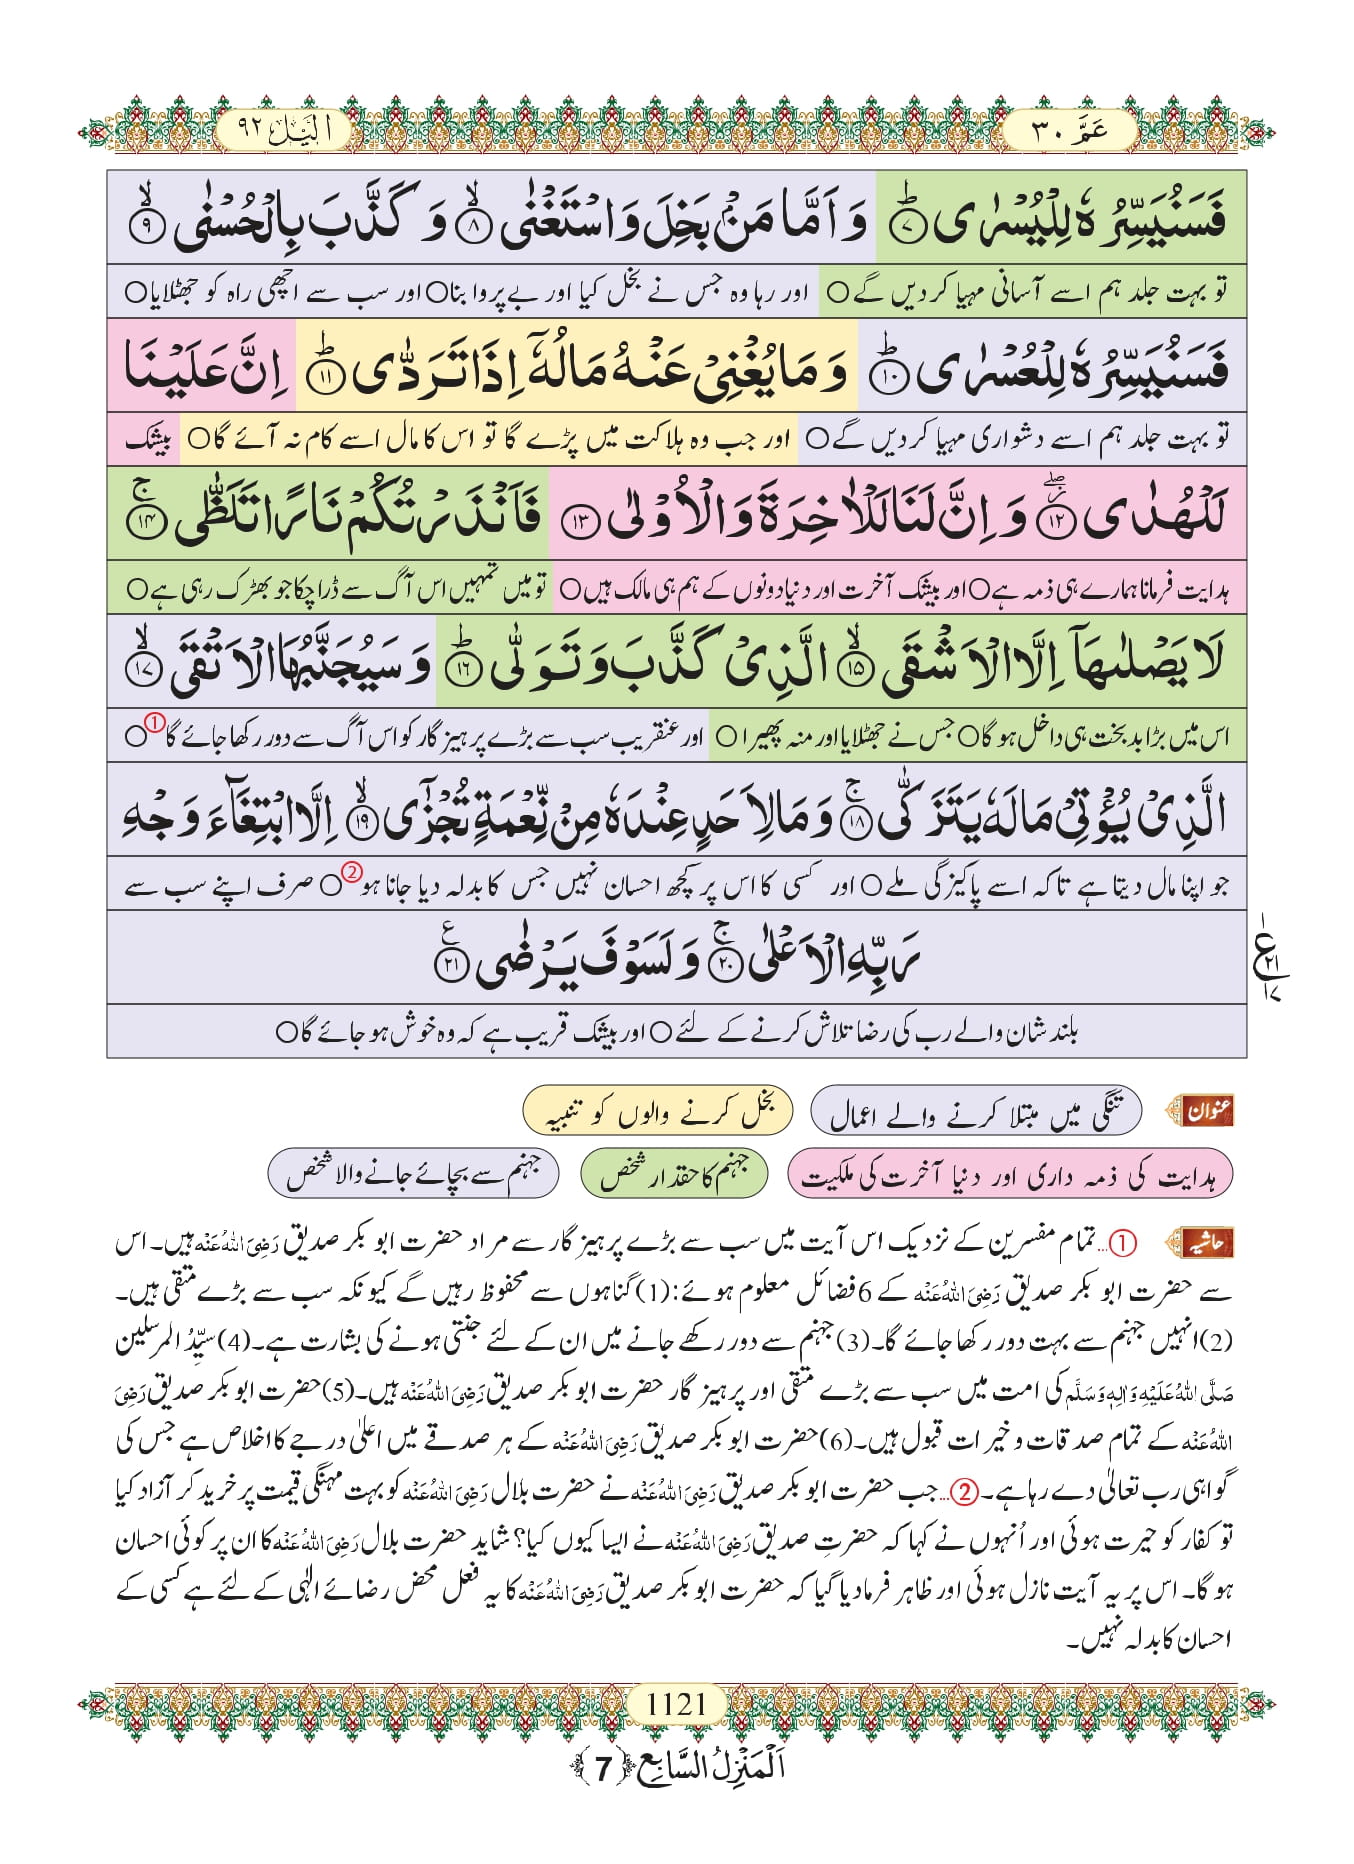 عَمَّ ٣٠
الَّيْل ٩٢
فَسَنُیَسِّرُهٗ لِلْیُسْرٰیؕ(۷) وَ اَمَّا مَنْۢ بَخِلَ وَ اسْتَغْنٰیۙ(۸) وَ كَذَّبَ بِالْحُسْنٰیۙ(۹)
تو بہت جلد ہم اسے آسانی مہیا کردیں گے○ اور رہا وہ جس نے بخل کیا اور بے پروا بنا○ اور سب سے اچھی راہ کو جھٹلایا○
فَسَنُیَسِّرُهٗ لِلْعُسْرٰیؕ(۱۰) وَ مَا یُغْنِیْ عَنْهُ مَالُهٗۤ اِذَا تَرَدّٰیؕ(۱۱) اِنَّ عَلَیْنَا
تو بہت جلد ہم اسے دشواری مہیا کردیں گے○ اور جب وہ ہلاکت میں پڑے گا تو اس کا مال اسے کام نہ آئے گا○ بیشک
لَلْهُدٰی(۱۲) وَ اِنَّ لَنَا لَلْاٰخِرَةَ وَ الْاُوْلٰی(۱۳) فَاَنْذَرْتُكُمْ نَارًا تَلَظّٰیۚ(۱۴)
ہدایت فرمانا ہمارے ہی ذمہ ہے○ اور بیشک آخرت اور دنیا دونوں کے ہم ہی مالک ہیں○ تو میں تمہیں اس آگ سے ڈرا چکا جو بھڑک رہی ہے○
لَا یَصْلٰىهَاۤ اِلَّا الْاَشْقَیۙ(۱۵) الَّذِیْ كَذَّبَ وَ تَوَلّٰیؕ(۱۶) وَ سَیُجَنَّبُهَا الْاَتْقَیۙ(۱۷)
اس میں بڑا بدبخت ہی داخل ہو گا○ جس نے جھٹلایا اور منہ پھیرا○ اور عنقریب سب سے بڑے پرہیزگار کو اس آگ سے دور رکھا جائے گا①○
الَّذِیْ یُؤْتِیْ مَالَهٗ یَتَزَكّٰیۚ(۱۸) وَ مَا لِاَحَدٍ عِنْدَهٗ مِنْ نِّعْمَةٍ تُجْزٰۤیۙ(۱۹) اِلَّا ابْتِغَآءَ وَجْهِ
جو اپنا مال دیتا ہے تاکہ اسے پاکیزگی ملے○ اور کسی کا اس پر کچھ احسان نہیں جس کا بدلہ دیا جانا ہو②○ صرف اپنے سب سے
رَبِّهِ الْاَعْلٰیۚ(۲۰) وَ لَسَوْفَ یَرْضٰی(۲۱)ع
ع ١ ٢١ ١٧
بلند شان والے رب کی رضا تلاش کرنے کے لئے○ اور بیشک قریب ہے کہ وہ خوش ہو جائے گا○
عنوان تنگی میں مبتلا کرنے والے اعمال بخل کرنے والوں کو تنبیہ
ہدایت کی ذمہ داری اور دنیا آخرت کی ملکیت جہنم کا حقدار شخص جہنم سے بچائے جانے والا شخص
حاشیہ ①...تمام مفسرین کے نزدیک اس آیت میں سب سے بڑے پرہیزگار سے مراد حضرت ابو بکر صدیق رَضِیَ اللہُ عَنْہ ہیں۔ اس
سے حضرت ابو بکر صدیق رَضِیَ اللہُ عَنْہ کے 6 فضائل معلوم ہوئے: (1) گناہوں سے محفوظ رہیں گے کیونکہ سب سے بڑے متقی ہیں۔
(2) انہیں جہنم سے بہت دور رکھا جائے گا۔ (3) جہنم سے دور رکھے جانے میں ان کے لئے جنتی ہونے کی بشارت ہے۔ (4) سیِّدُ المرسلین
صَلَّی اللہُ عَلَیْہِ وَاٰلِہٖ وَسَلَّم کی امت میں سب سے بڑے متقی اور پرہیز گار حضرت ابو بکر صدیق رَضِیَ اللہُ عَنْہ ہیں۔ (5) حضرت ابو بکر صدیق رَضِیَ
اللہُ عَنْہ کے تمام صدقات و خیرات قبول ہیں۔ (6) حضرت ابو بکر صدیق رَضِیَ اللہُ عَنْہ کے ہر صدقے میں اعلیٰ درجے کا اخلاص ہے جس کی
گواہی رب تعالیٰ دے رہا ہے۔ ②...جب حضرت ابو بکر صدیق رَضِیَ اللہُ عَنْہ نے حضرت بلال رَضِیَ اللہُ عَنْہ کو بہت مہنگی قیمت پر خرید کر آزاد کیا
تو کفار کو حیرت ہوئی اور اُنہوں نے کہا کہ حضرتِ صدیق رَضِیَ اللہُ عَنْہ نے ایسا کیوں کیا؟ شاید حضرت بلال رَضِیَ اللہُ عَنْہ کا ان پر کوئی احسان
ہو گا۔ اس پر یہ آیت نازل ہوئی اور ظاہر فرما دیا گیا کہ حضرت ابو بکر صدیق رَضِیَ اللہُ عَنْہ کا یہ فعل محض رضائے الٰہی کے لئے ہے کسی کے
احسان کا بدلہ نہیں۔
1121
اَلْمَنْزِلُ السَّابِع ﴿7﴾